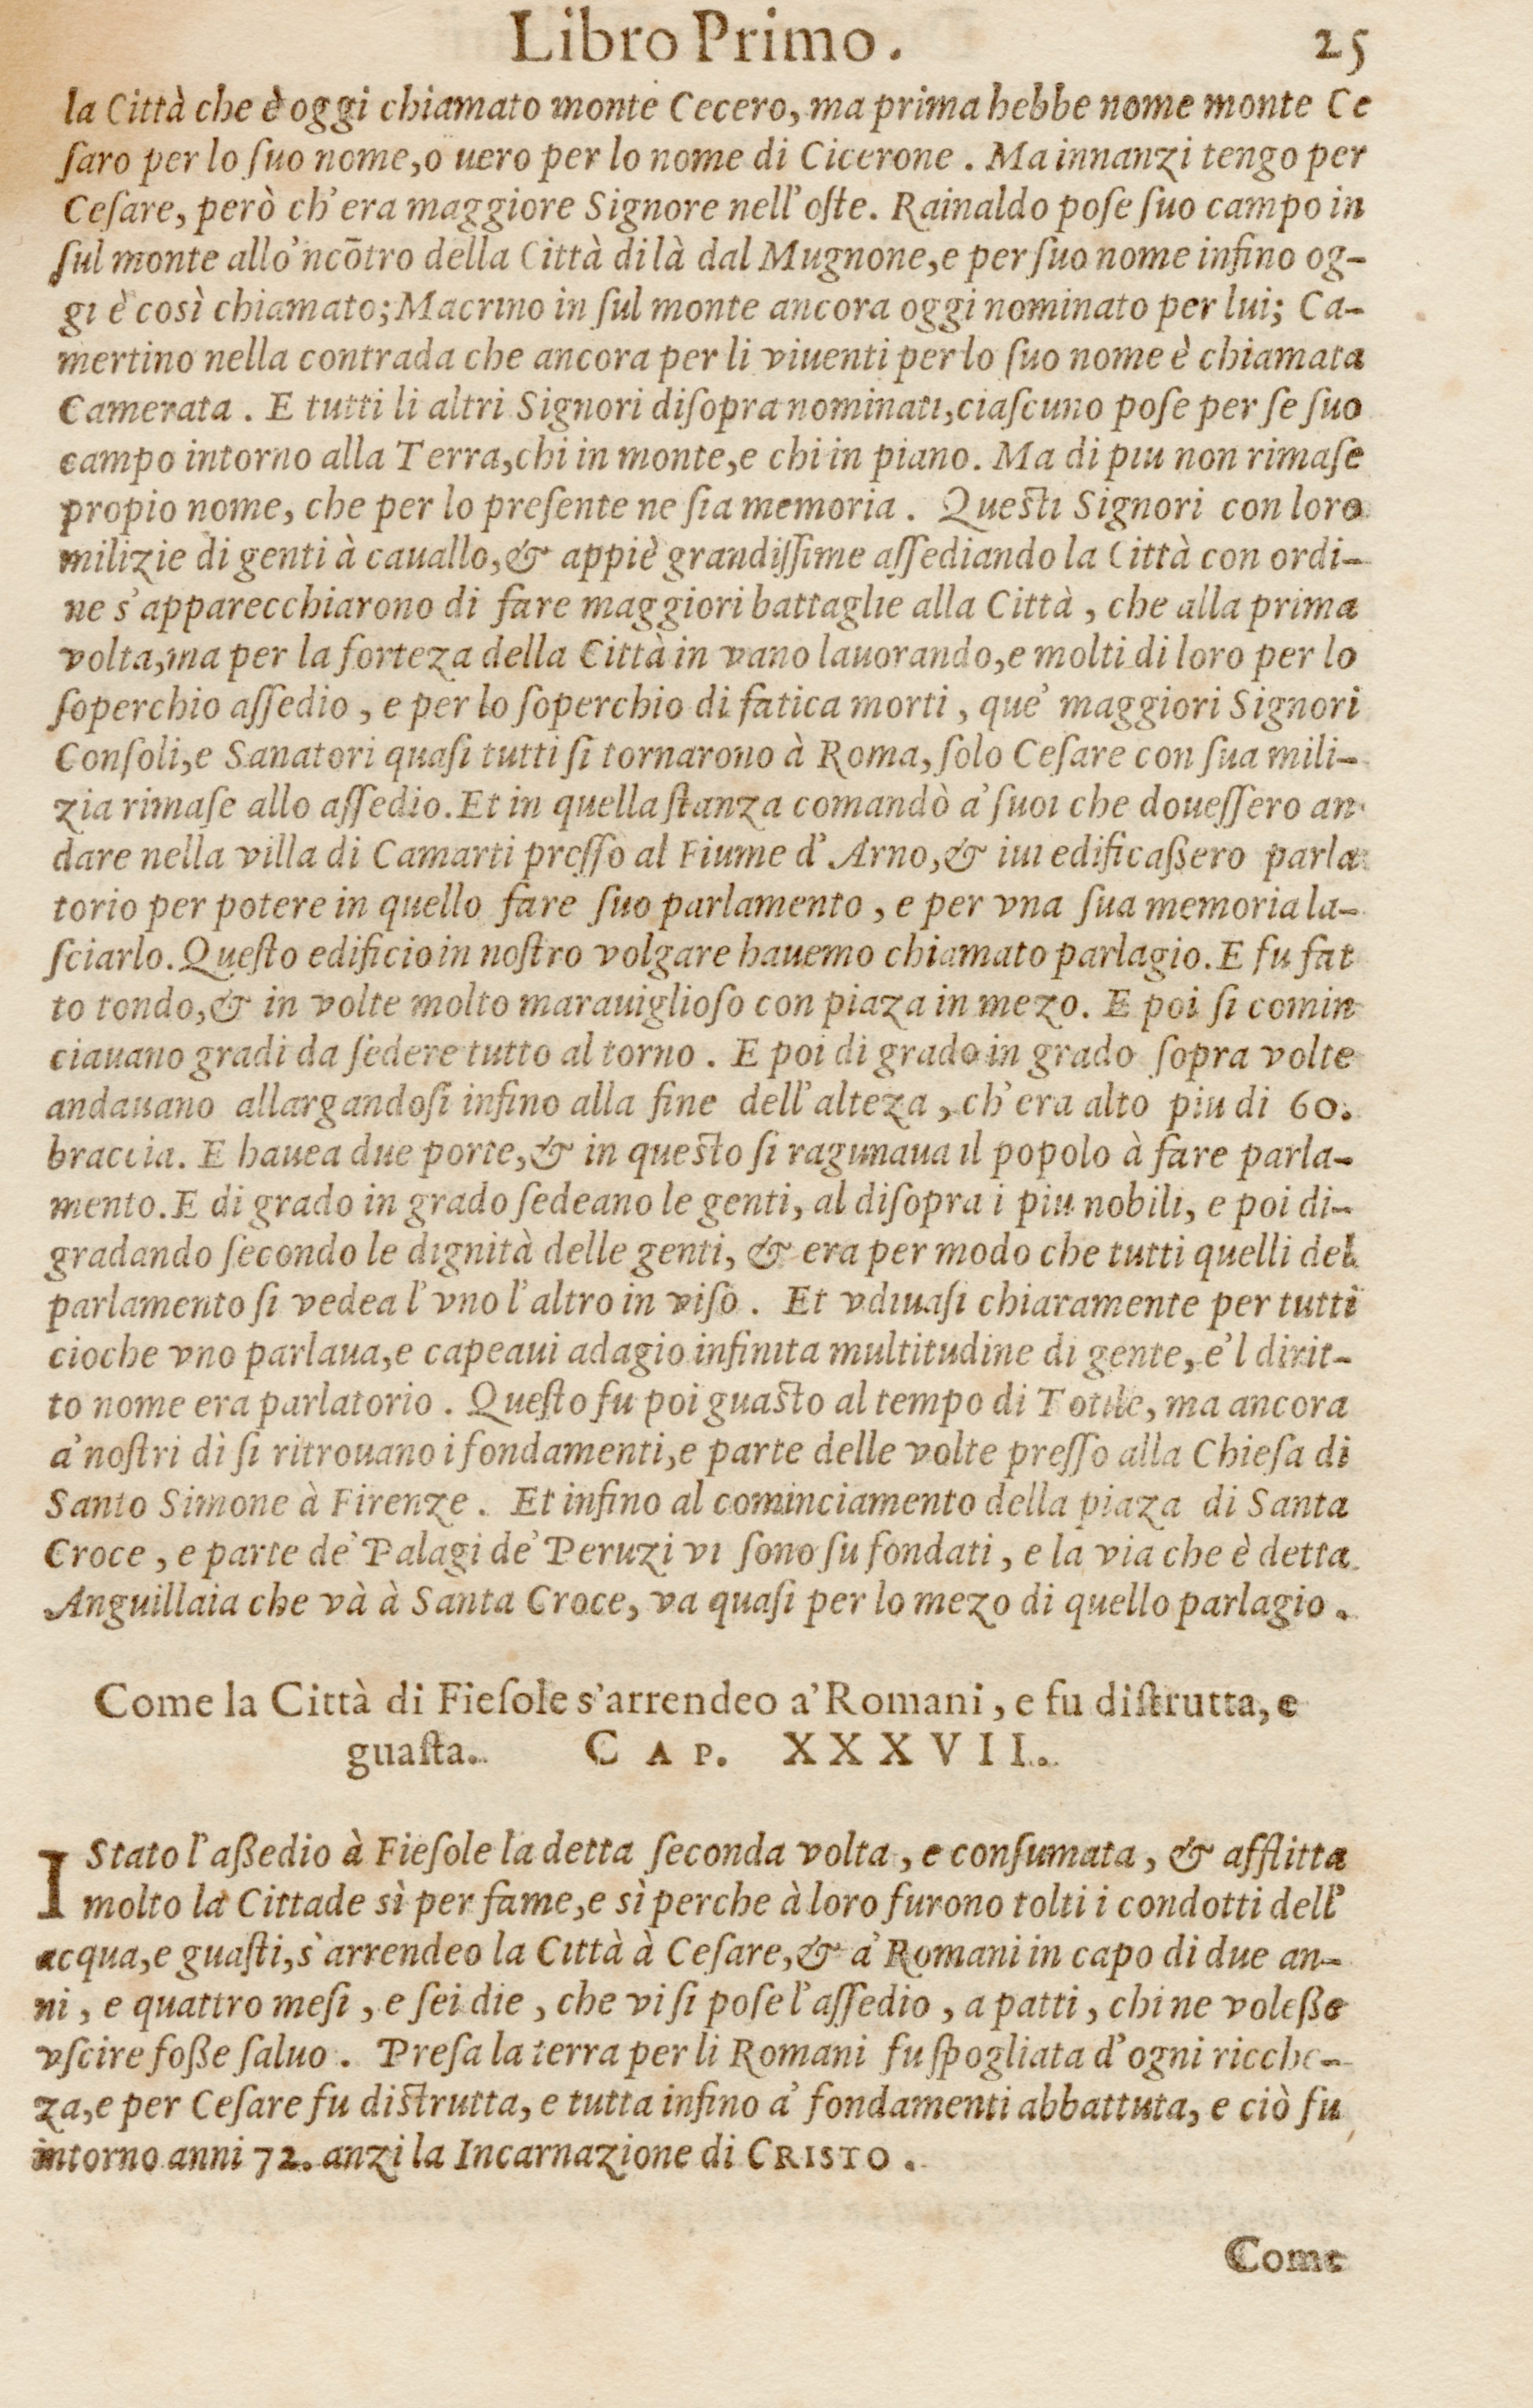 Libro Primo. 25
la Città che è oggi chiamato monte Cecero, ma prima hebbe nome monte Ce
ſaro per lo ſuo nome, o uero per lo nome di Cicerone. Ma innanzi tengo per
Ceſare, però ch'era maggiore Signore nell'oſte. Rainaldo poſe ſuo campo in
ſul monte allo'ncōtro della Città di là dal Mugnone, e per ſuo nome infino og-
gi è così chiamato; Macrino in ſul monte ancora oggi nominato per lui; Ca-
mertino nella contrada che ancora per li viuenti per lo ſuo nome è chiamata
Camerata. E tutti li altri Signori diſopra nominati, ciaſcuno poſe per ſe ſuo
campo intorno alla Terra, chi in monte, e chi in piano. Ma di piu non rimaſe
propio nome, che per lo preſente ne ſia memoria. Queſti Signori con loro
milizie di genti à cauallo, & appiè grandiſſime aſſediando la Città con ordi-
ne s'apparecchiarono di fare maggiori battaglie alla Città, che alla prima
volta, ma per la forteza della Città in vano lauorando, e molti di loro per lo
ſoperchio aſſedio, e per lo ſoperchio di fatica morti, que' maggiori Signori
Conſoli, e Sanatori quaſi tutti ſi tornarono à Roma, ſolo Ceſare con ſua mili-
zia rimaſe allo aſſedio. Et in quella ſtanza comandò a' ſuoi che doueſſero an
dare nella villa di Camarti preſſo al Fiume d'Arno, & iui edificaßero parla
torio per potere in quello fare ſuo parlamento, e per vna ſua memoria la-
ſciarlo. Queſto edificio in noſtro volgare hauemo chiamato parlagio. E fu fat
to tondo, & in volte molto marauiglioſo con piaza in mezo. E poi ſi comin
ciauano gradi da ſedere tutto al torno. E poi di grado in grado ſopra volte
andauano allargandoſi infino alla fine dell'alteza, ch'era alto piu di 60.
braccia. E hauea due porte, & in queſto ſi ragunaua il popolo à fare parla-
mento. E di grado in grado ſedeano le genti, al diſopra i piu nobili, e poi di-
gradando ſecondo le dignità delle genti, & era per modo che tutti quelli del
parlamento ſi vedea l'vno l'altro in viſo. Et vdiuaſi chiaramente per tutti
cioche vno parlaua, e capeaui adagio infinita multitudine di gente, e'l dirit-
to nome era parlatorio. Queſto fu poi guaſto al tempo di Totile, ma ancora
a' noſtri dì ſi ritrouano i fondamenti, e parte delle volte preſſo alla Chieſa di
Santo Simone à Firenze. Et infino al cominciamento della piaza di Santa
Croce, e parte de' Palagi de' Peruzi vi ſono ſu fondati, e la via che è detta
Anguillaia che và à Santa Croce, va quaſi per lo mezo di quello parlagio.
Come la Città di Fieſole s'arrendeo a' Romani, e fu diſtrutta, e
guaſta. CAP. XXXVII.
IStato l'aßedio à Fieſole la detta ſeconda volta, e conſumata, & afflitta
molto la Cittade sì per fame, e sì perche à loro furono tolti i condotti dell'
acqua, e guaſti, s'arrendeo la Città à Ceſare, & a' Romani in capo di due an-
ni, e quattro meſi, e ſei die, che vi ſi poſe l'aſſedio, a patti, chi ne voleße
vſcire foße ſaluo. Preſa la terra per li Romani fu ſpogliata d'ogni ricche-
za, e per Ceſare fu diſtrutta, e tutta infino a' fondamenti abbattuta, e ciò fu
intorno anni 72. anzi la Incarnazione di CRISTO.
Come